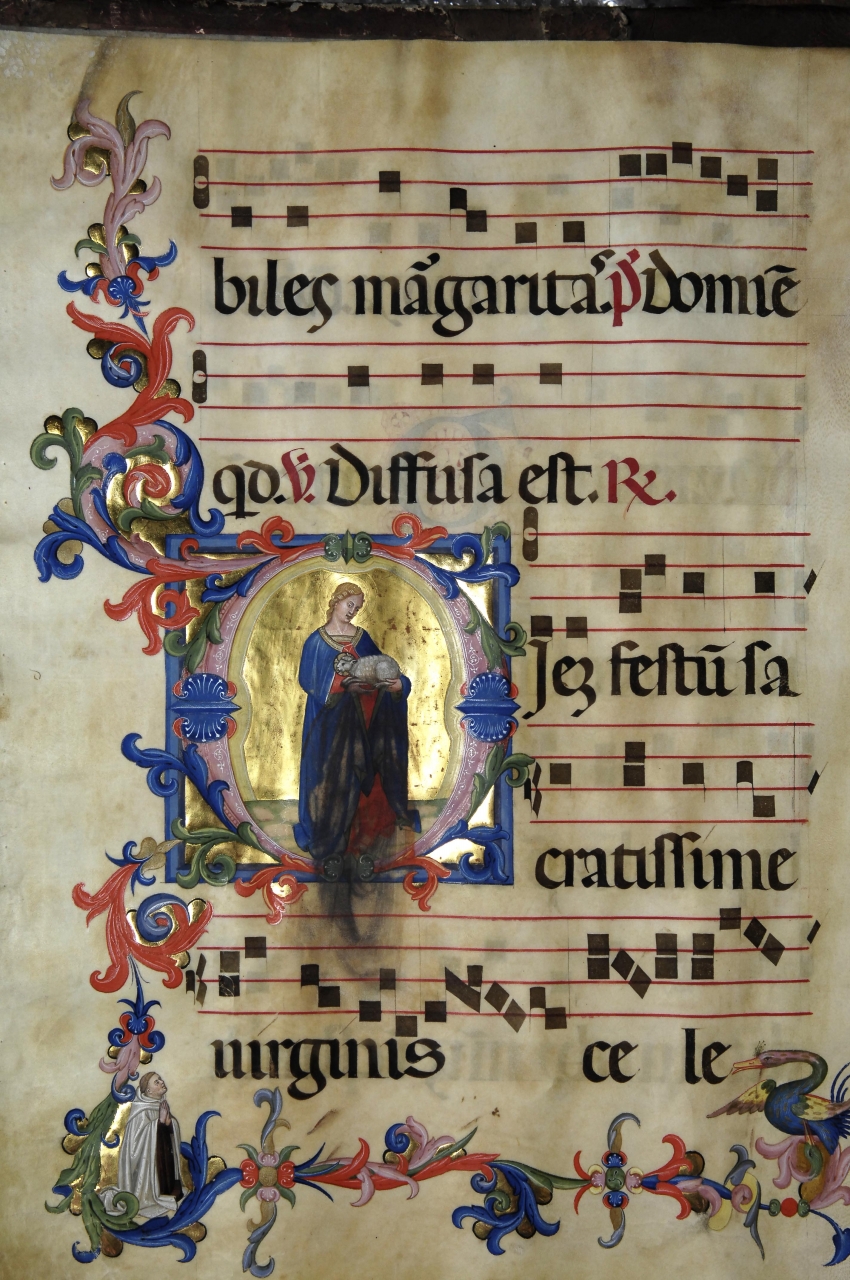 biles mãgarita. ps̃ domiẽ
qd. ℣. Diffusa est. ℟.
Diez festũ sa
cratissime
uirginis ce le